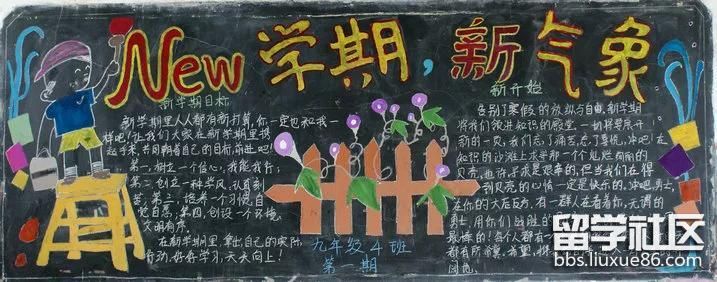 New 学期，新气象
新学期目标
新学期里人人都有新打算,你一定也和我一
样吧!让我们大家在新学期里携
起手来,共同朝着自己的目标,前进吧!
第一,树立一个信心,我能我行;
第二,创立一种学风,认真刻
苦;第三,培养一个习惯,自
觉自志;第四,创设一个环境,
文明有序。
在新学期里,拿出自己的实际
行动,好好学习,天天向上!
九年级4班
第一期
新开始
告别了寒假的放纵与自由,新学期
将我们领进知识的殿堂,一切将要展开
新的一页,我们忘了痛苦,忘了骄傲,冲吧!在
知识的沙滩上求寻那一个个绚烂
贝壳,也许寻求是艰辛的,但当我们在得
到贝壳的心情一定是快乐的,冲吧,勇士,
在你的大后方,有一群人在看着你,无谓的
勇士,用你们战胜的
最棒的!每个人都有
都有所
留学社区
bbs.liuxue86.com